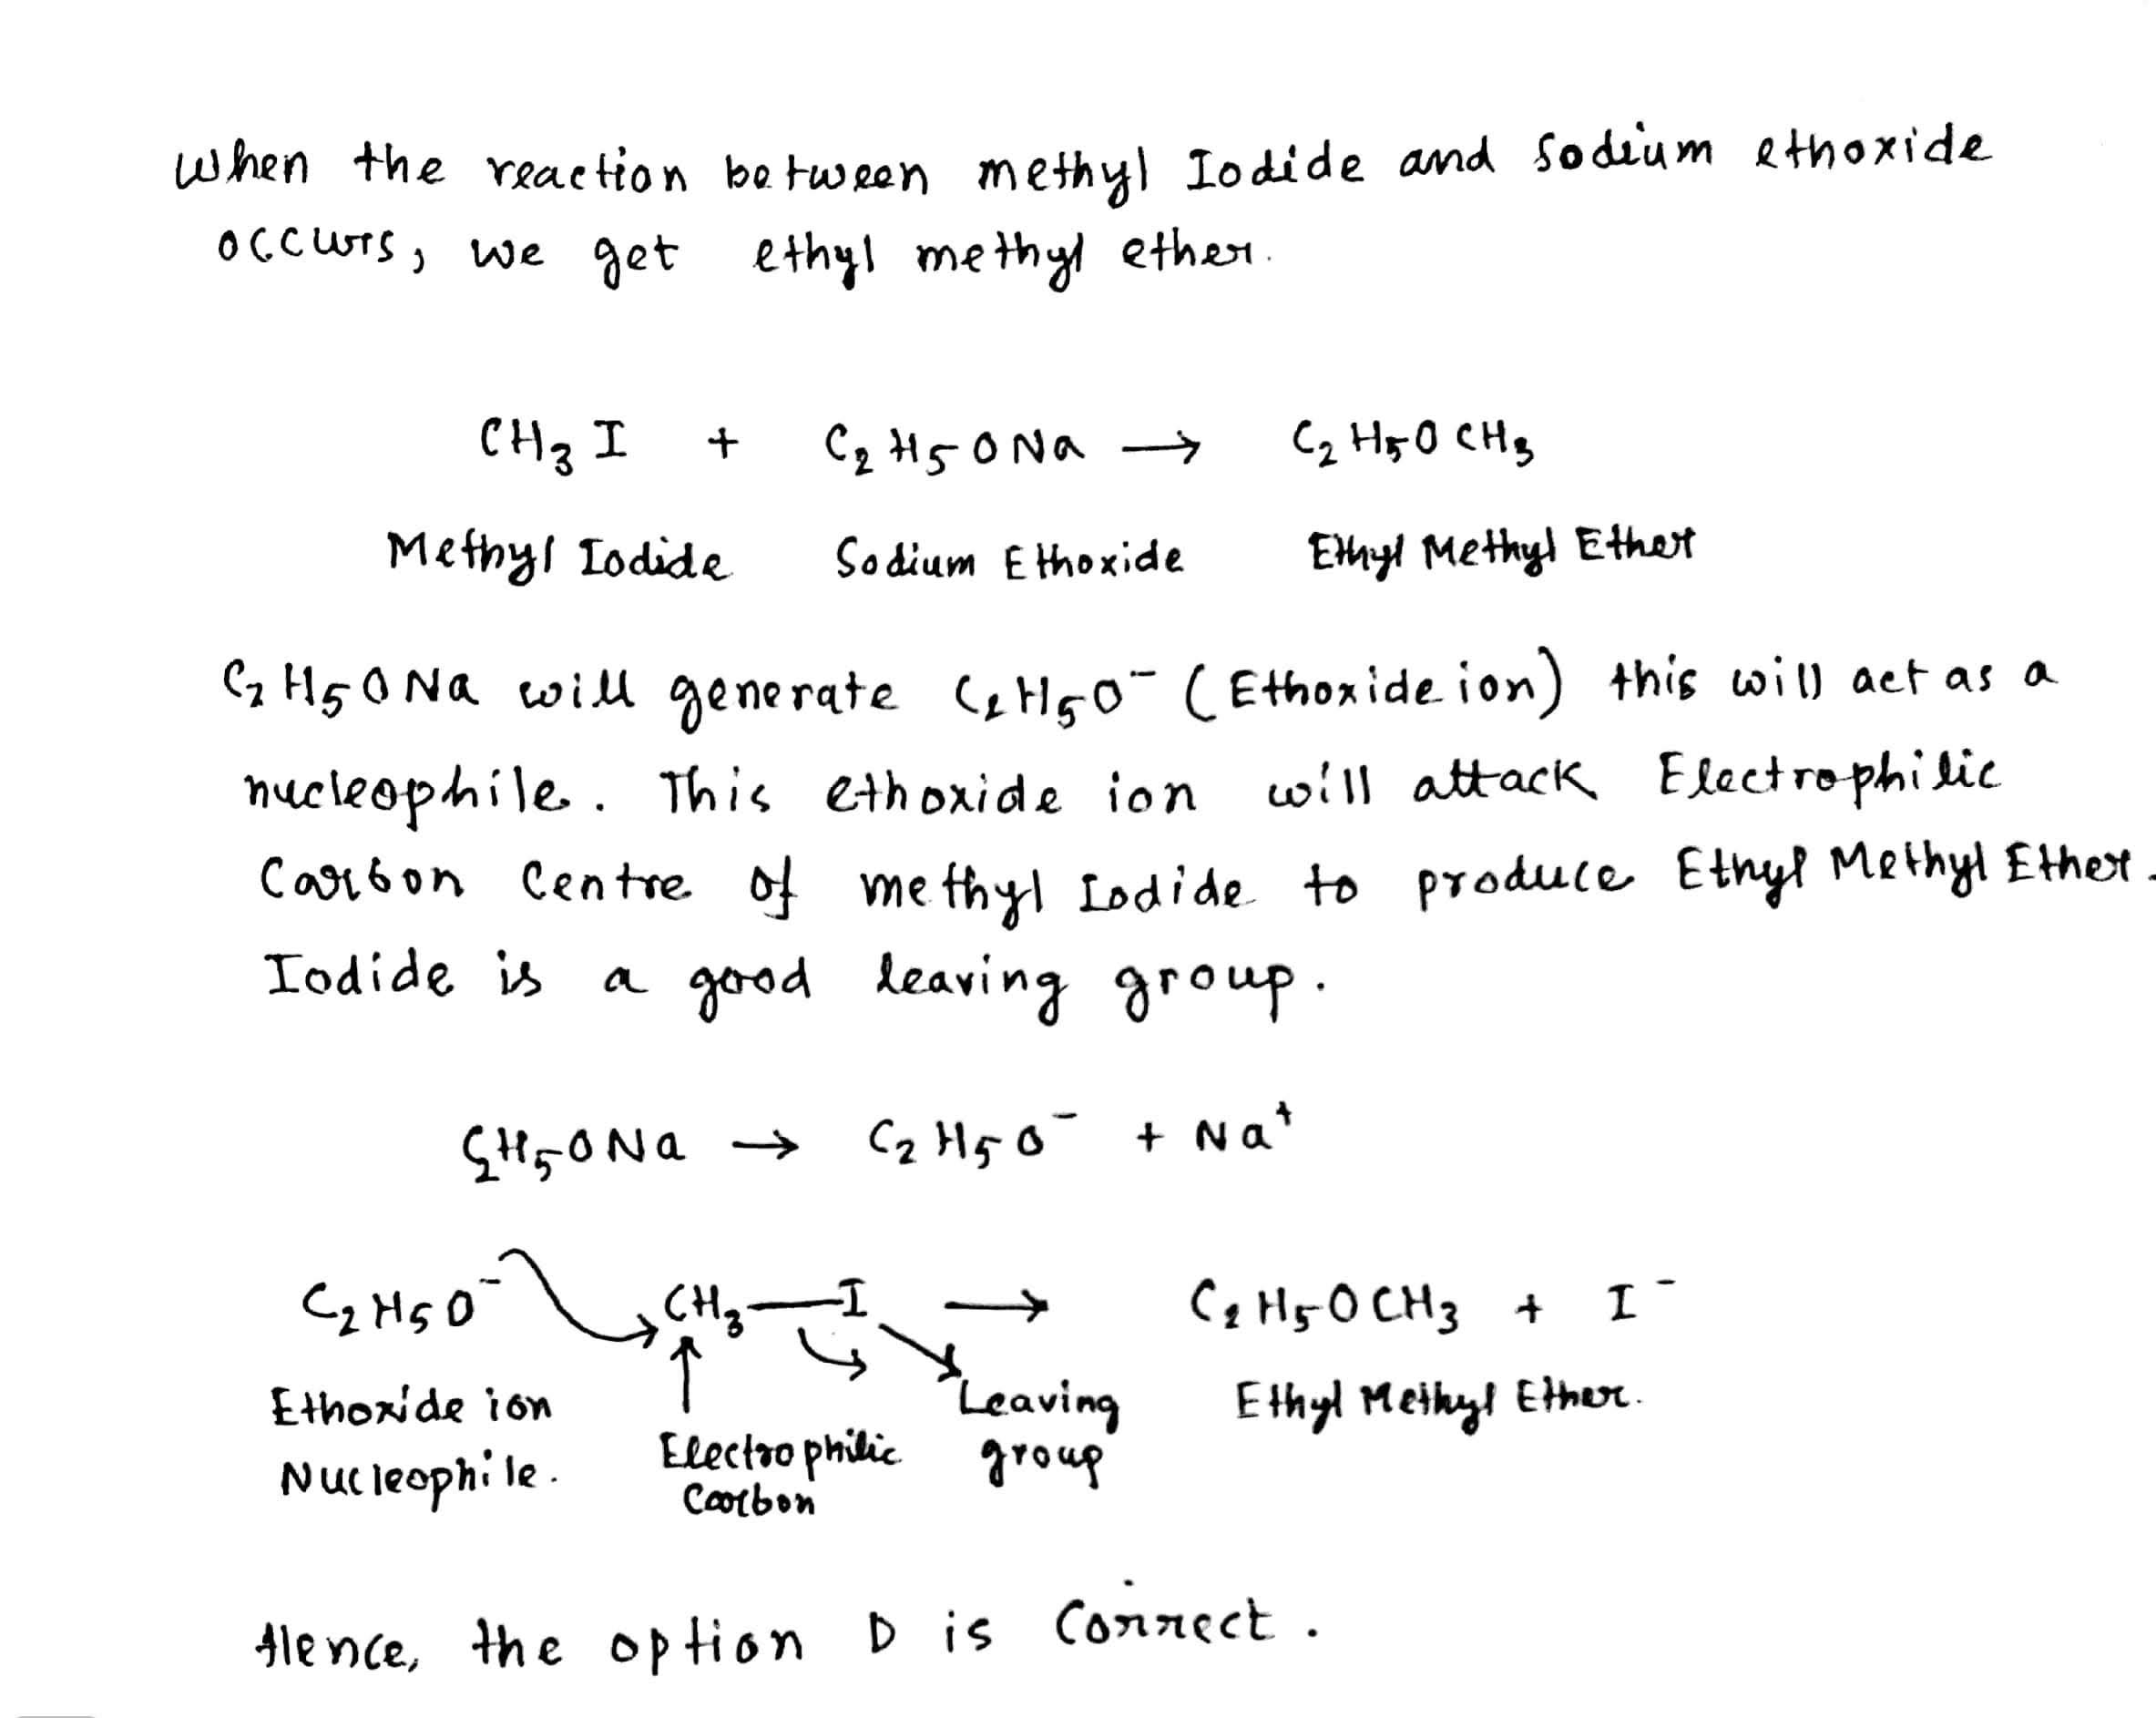 When the reaction between methyl Iodide and Sodium ethoxide
occurs, we get ethyl methyl ether.
CH₃ I + C₂H₅ONa → C₂H₅OCH₃
Methyl Iodide Sodium Ethoxide Ethyl Methyl Ether
C₂H₅ONa will generate C₂H₅O⁻ (Ethoxide ion) this will act as a
nucleophile. This ethoxide ion will attack Electrophilic
Carbon Centre of methyl Iodide to produce Ethyl Methyl Ether.
Iodide is a good leaving group.
C₂H₅ONa → C₂H₅O⁻ + Na⁺
C₂H₅O⁻ CH₃—I → C₂H₅OCH₃ + I⁻
Ethoxide ion Leaving Ethyl Methyl Ether.
Nucleophile. Electrophilic group
Carbon
Hence, the option D is Correct.